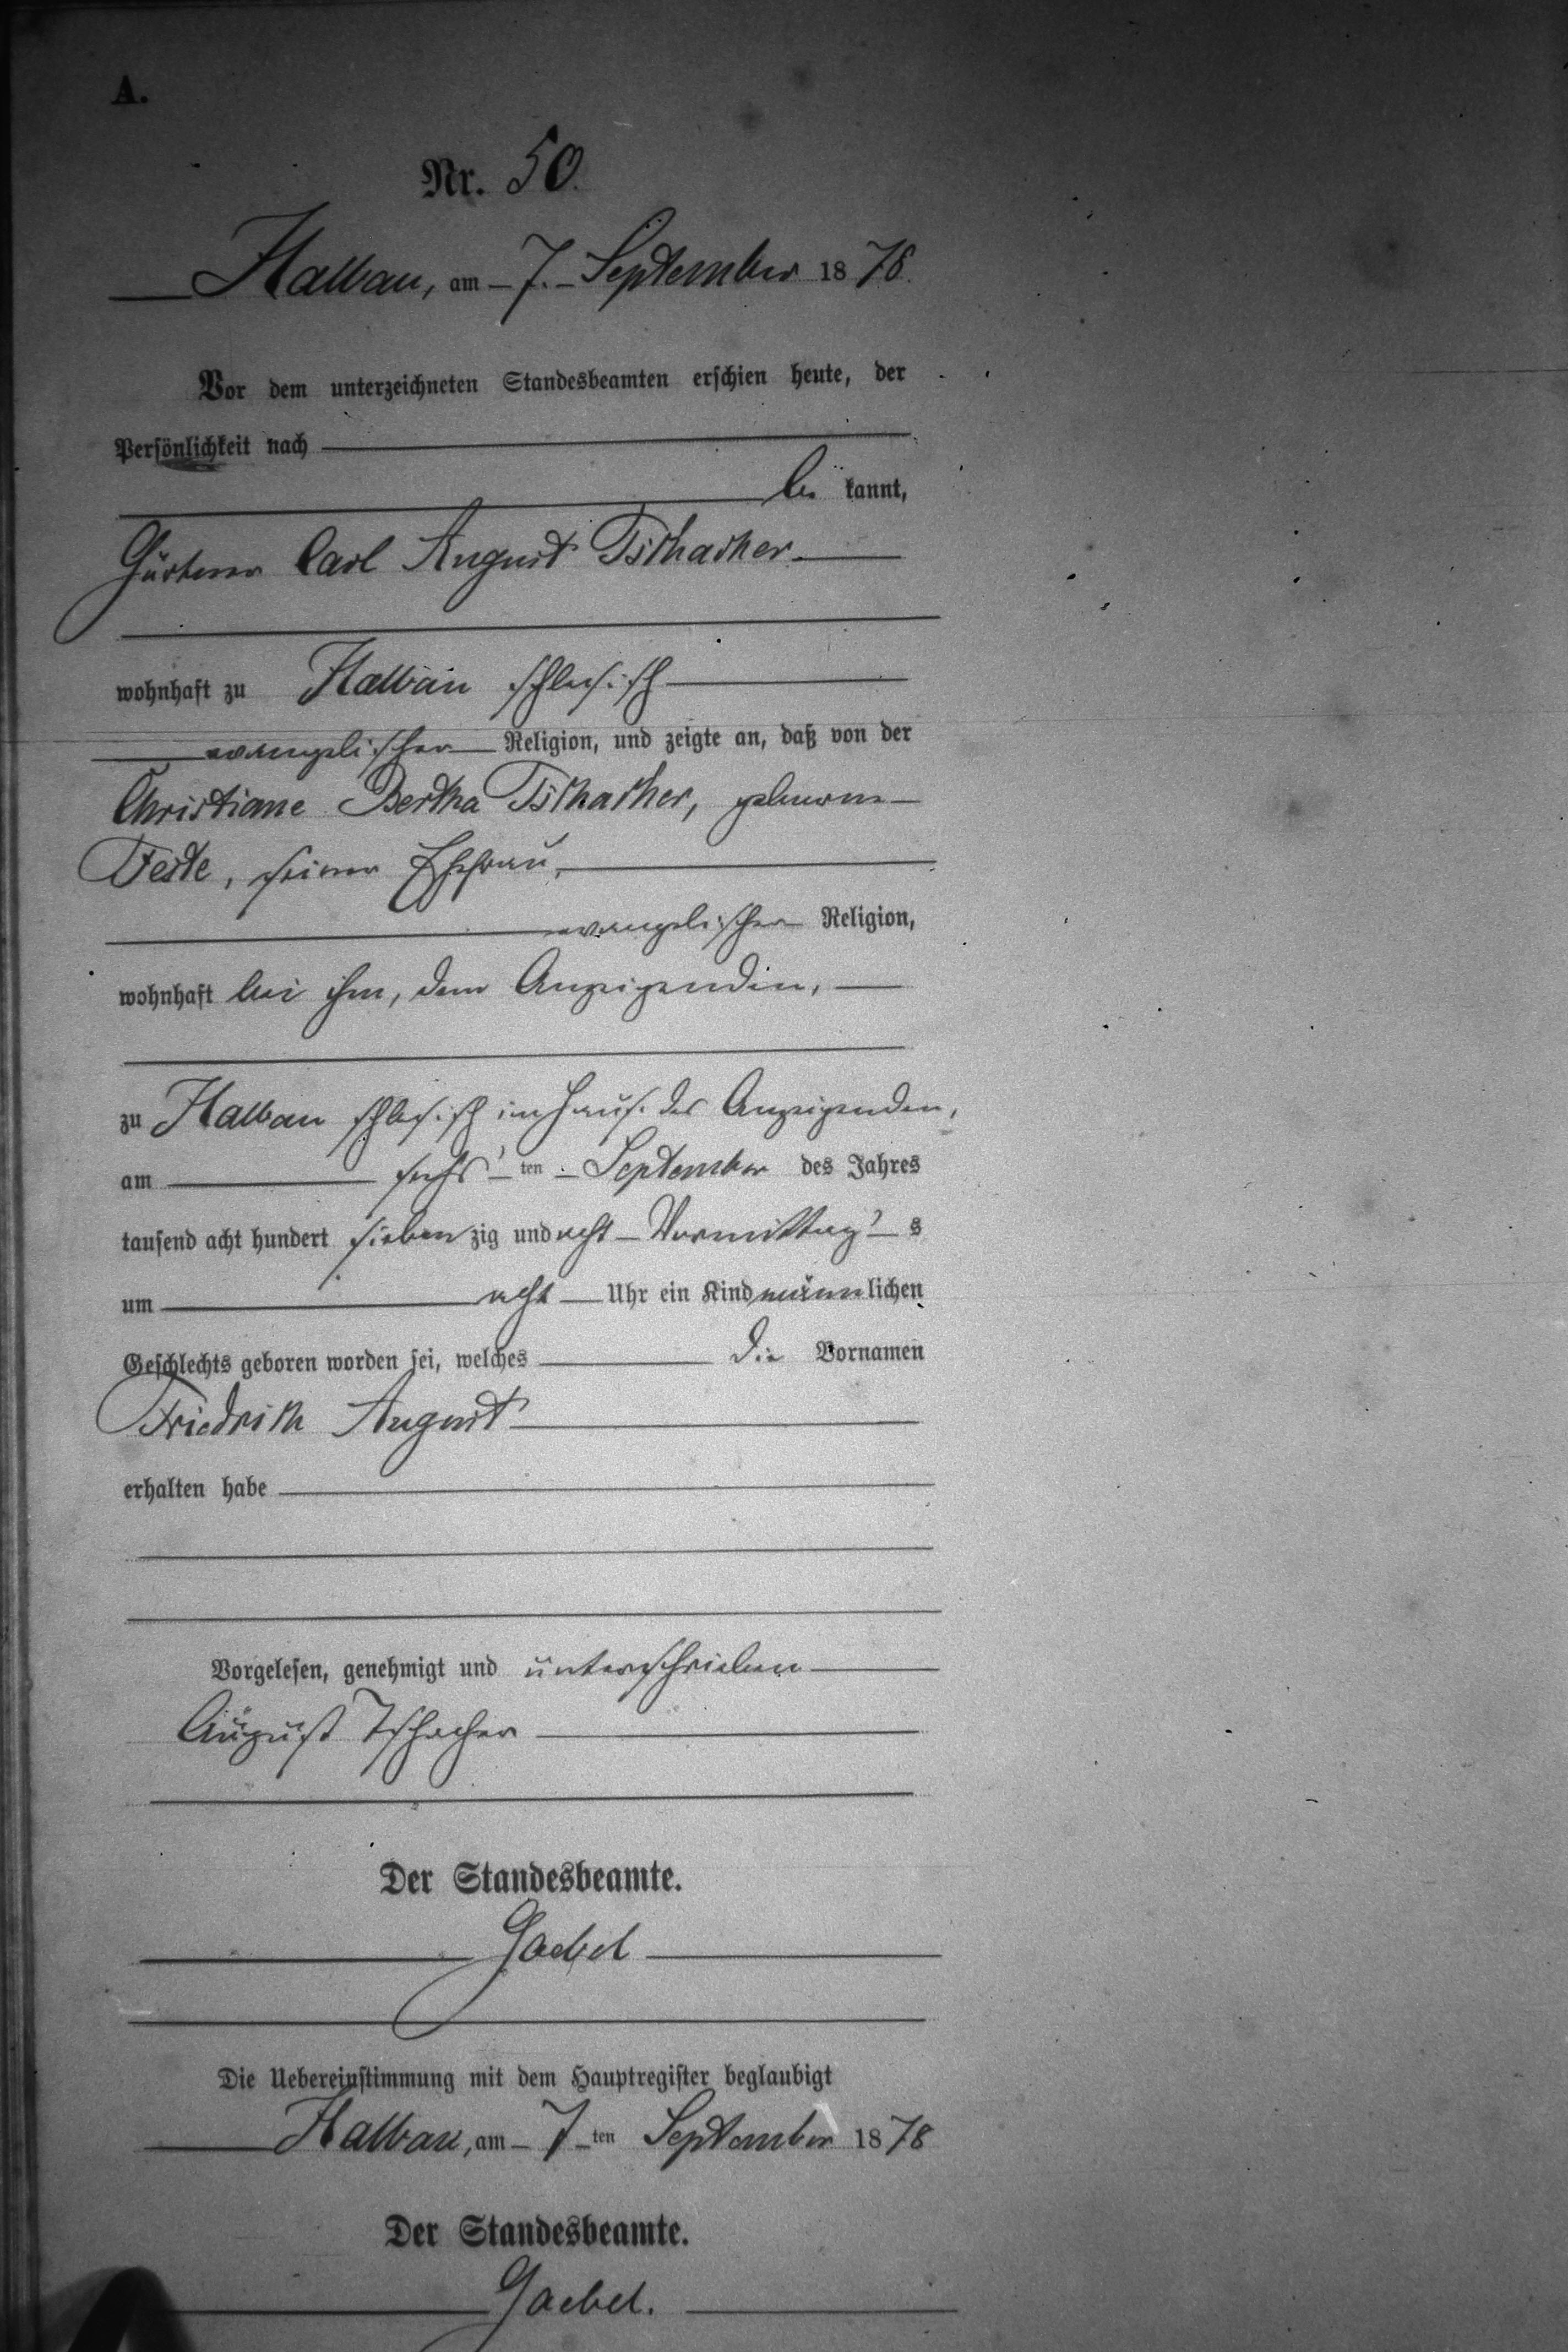 A.
Nr. 50.
Halbau, am 7. September 1878.
Vor dem unterzeichneten Standesbeamten erschien heute, der
Persönlichkeit nach
be kannt,
Gärtner Carl August Tschacher
wohnhaft zu Halbau schlesisch
evangelischer Religion, und zeigte an, daß von der
Christiane Bertha Tschacher, geborene
seiner Ehefrau,
evangelischer Religion,
wohnhaft bei ihm, dem Anzeigenden,
zu Halbau schlesisch im Hause des Anzeigenden,
am sechs ten September des Jahres
tausend acht hundert sieben zig und acht Vormittag s
um acht Uhr ein Kind männ lichen
Geschlechts geboren worden sei, welches die Vornamen
Friedrich August
erhalten habe
Vorgelesen, genehmigt und unterschrieben
August Tschacher
Der Standesbeamte.
Gaebel
Die Uebereinstimmung mit dem Hauptregister beglaubigt
Halbau, am 7 ten September 1878
Der Standesbeamte.
Gaebel.